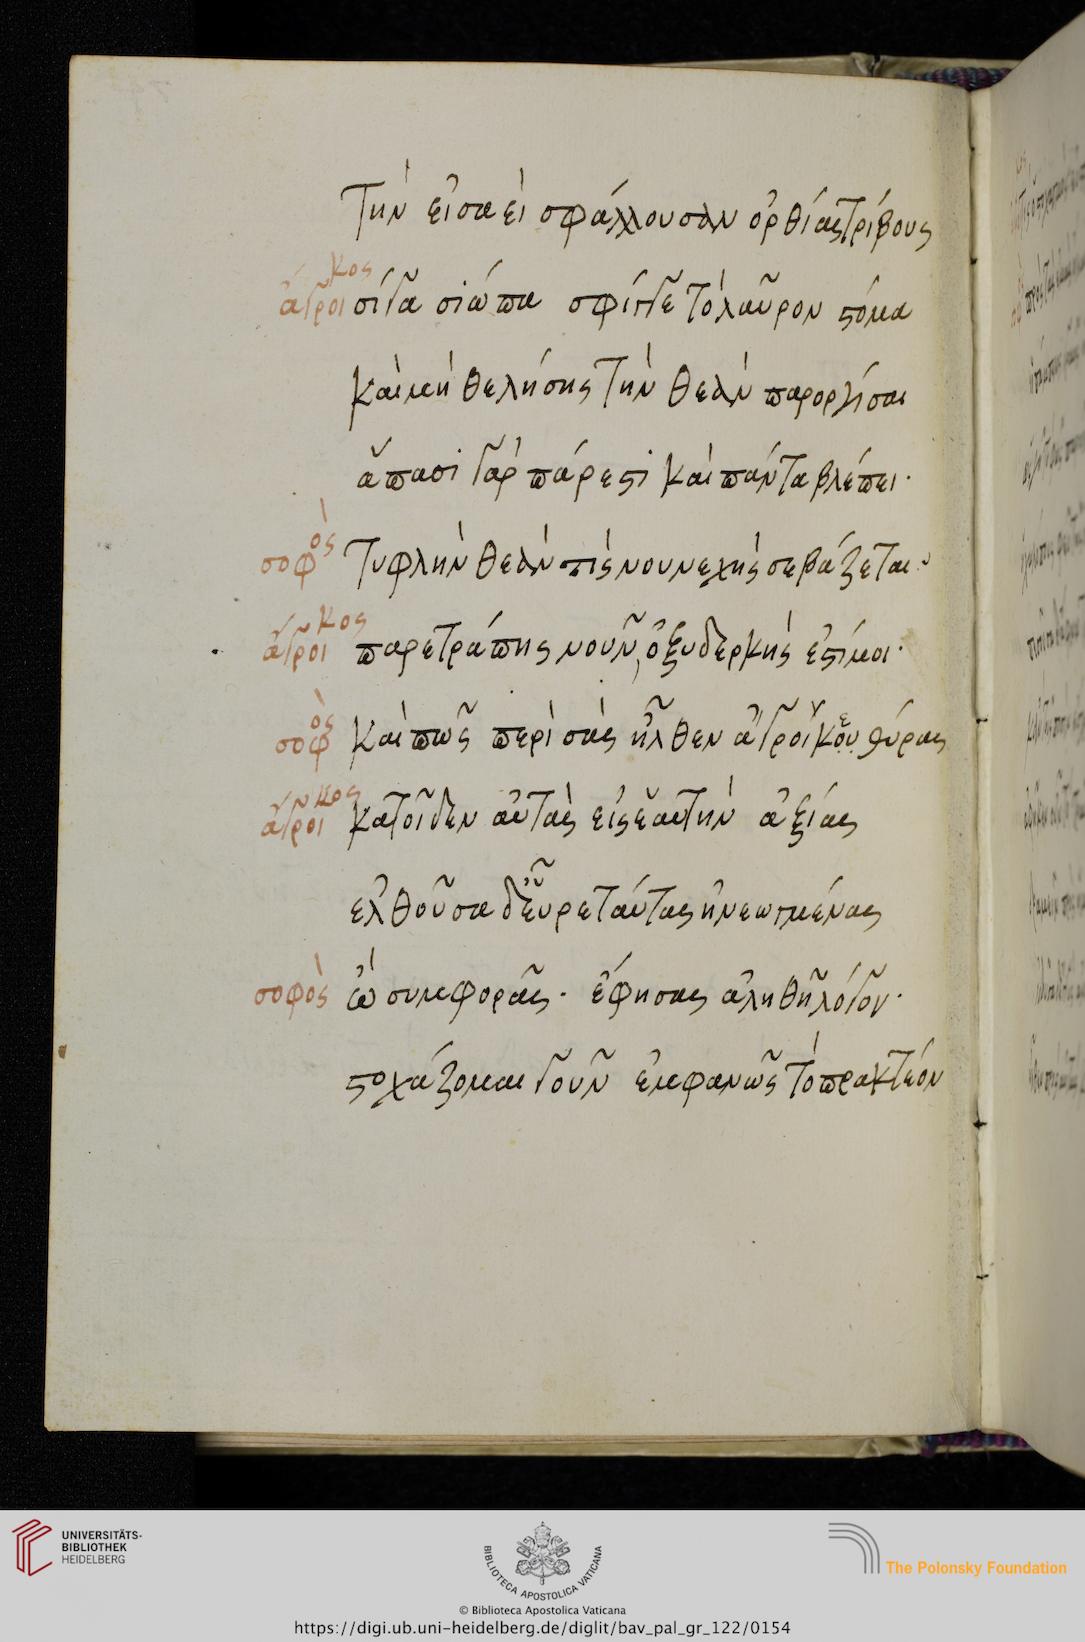 Τὴν εἰσαεὶ σφάλλουσαν ὀρθίας τρίβους
ἄγροικος σίγα σιώπα σφίγγε τὸ λαῦρον στόμα
καὶ μὴ θελήσῃς τὴν θεὰν παροργίσαι
ἅπασι γὰρ πάρεστι καὶ πάντα βλέπει·
σοφὸς Τυφλὴν θεὰν τίς νουνεχὴς σεβάζεται·
ἄγροικος παρετράπης νοῦν, ὀξυδερκής ἐστί μοι·
σοφὸς καὶ πῶς περὶ σὰς ἦλθεν ἄγροικου θύρας
ἄγροικος κατοῖδεν αὐτὰς εἰς ἑαυτὴν ἀξίας
ἐλθοῦσα δ' εὗρε ταύτας ἠνεωγμένας
σοφὸς ὢ συμφορᾶς· ἔφησας ἀληθῆ λόγον·
στοχάζομαι γοῦν ἐμφανῶς τὸ πρακτέον
UNIVERSITÄTS-
BIBLIOTHEK
HEIDELBERG
BIBLIOTECA APOSTOLICA VATICANA
The Polonsky Foundation
© Biblioteca Apostolica Vaticana
https://digi.ub.uni-heidelberg.de/diglit/bav_pal_gr_122/0154